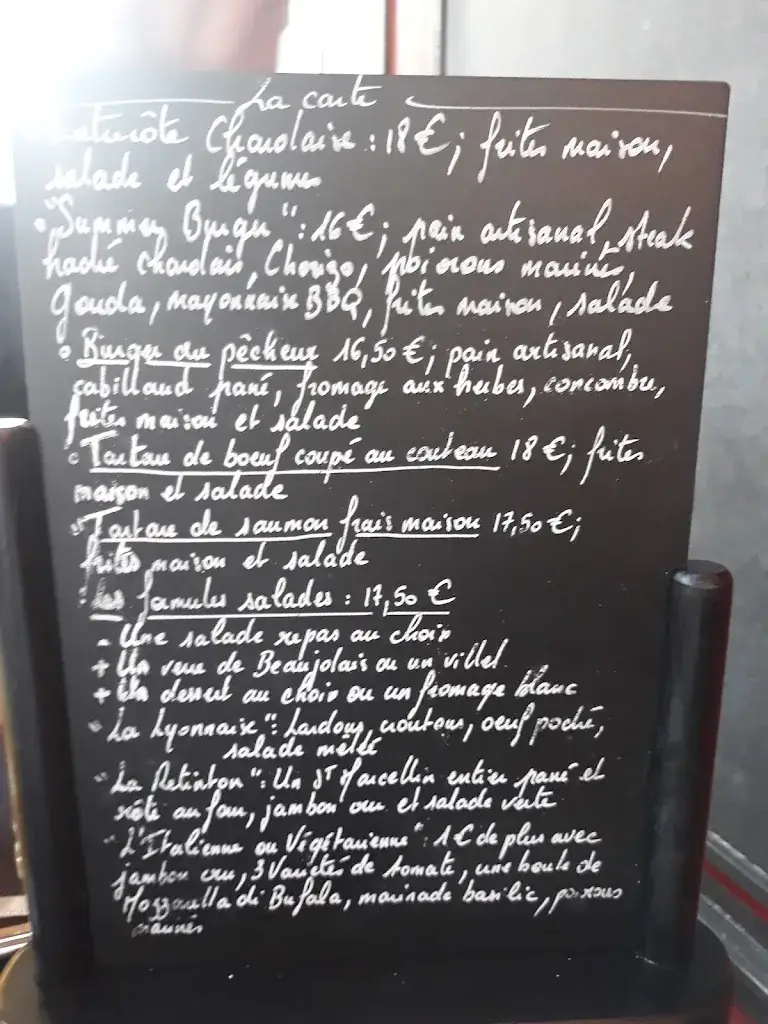 La carte
Charolaise : 18 €; frites maison,
salade et légumes
• "Summer Burger" : 16 €; pain artisanal, steak
haché charolais, Chorizo, poivrons marinés,
Gouda, mayonnaise BBQ, frites maison, salade
• Burger du pêcheur 16,50 €; pain artisanal,
cabillaud pané, fromage aux herbes, concombre,
frites maison et salade
• Tartare de boeuf coupé au couteau 18 €; frites
maison et salade
Tartare de saumon frais maison 17,50 €;
frites maison et salade
Les formules salades : 17,50 €
- Une salade repas au choix
+ Un verre de Beaujolais ou un vittel
+ Un dessert au choix ou un fromage blanc
"La Lyonnaise" : Lardons, croutons, oeuf poché,
salade mêlée
"La : Un St Marcellin entier pané et
rôti au four, jambon cru et salade verte
"L'Italienne ou Végétarienne" : 1 € de plus avec
jambon cru, 3 Variétés de tomate, une boule de
Mozzarella di Bufala, marinade basilic, poivrons
marinés